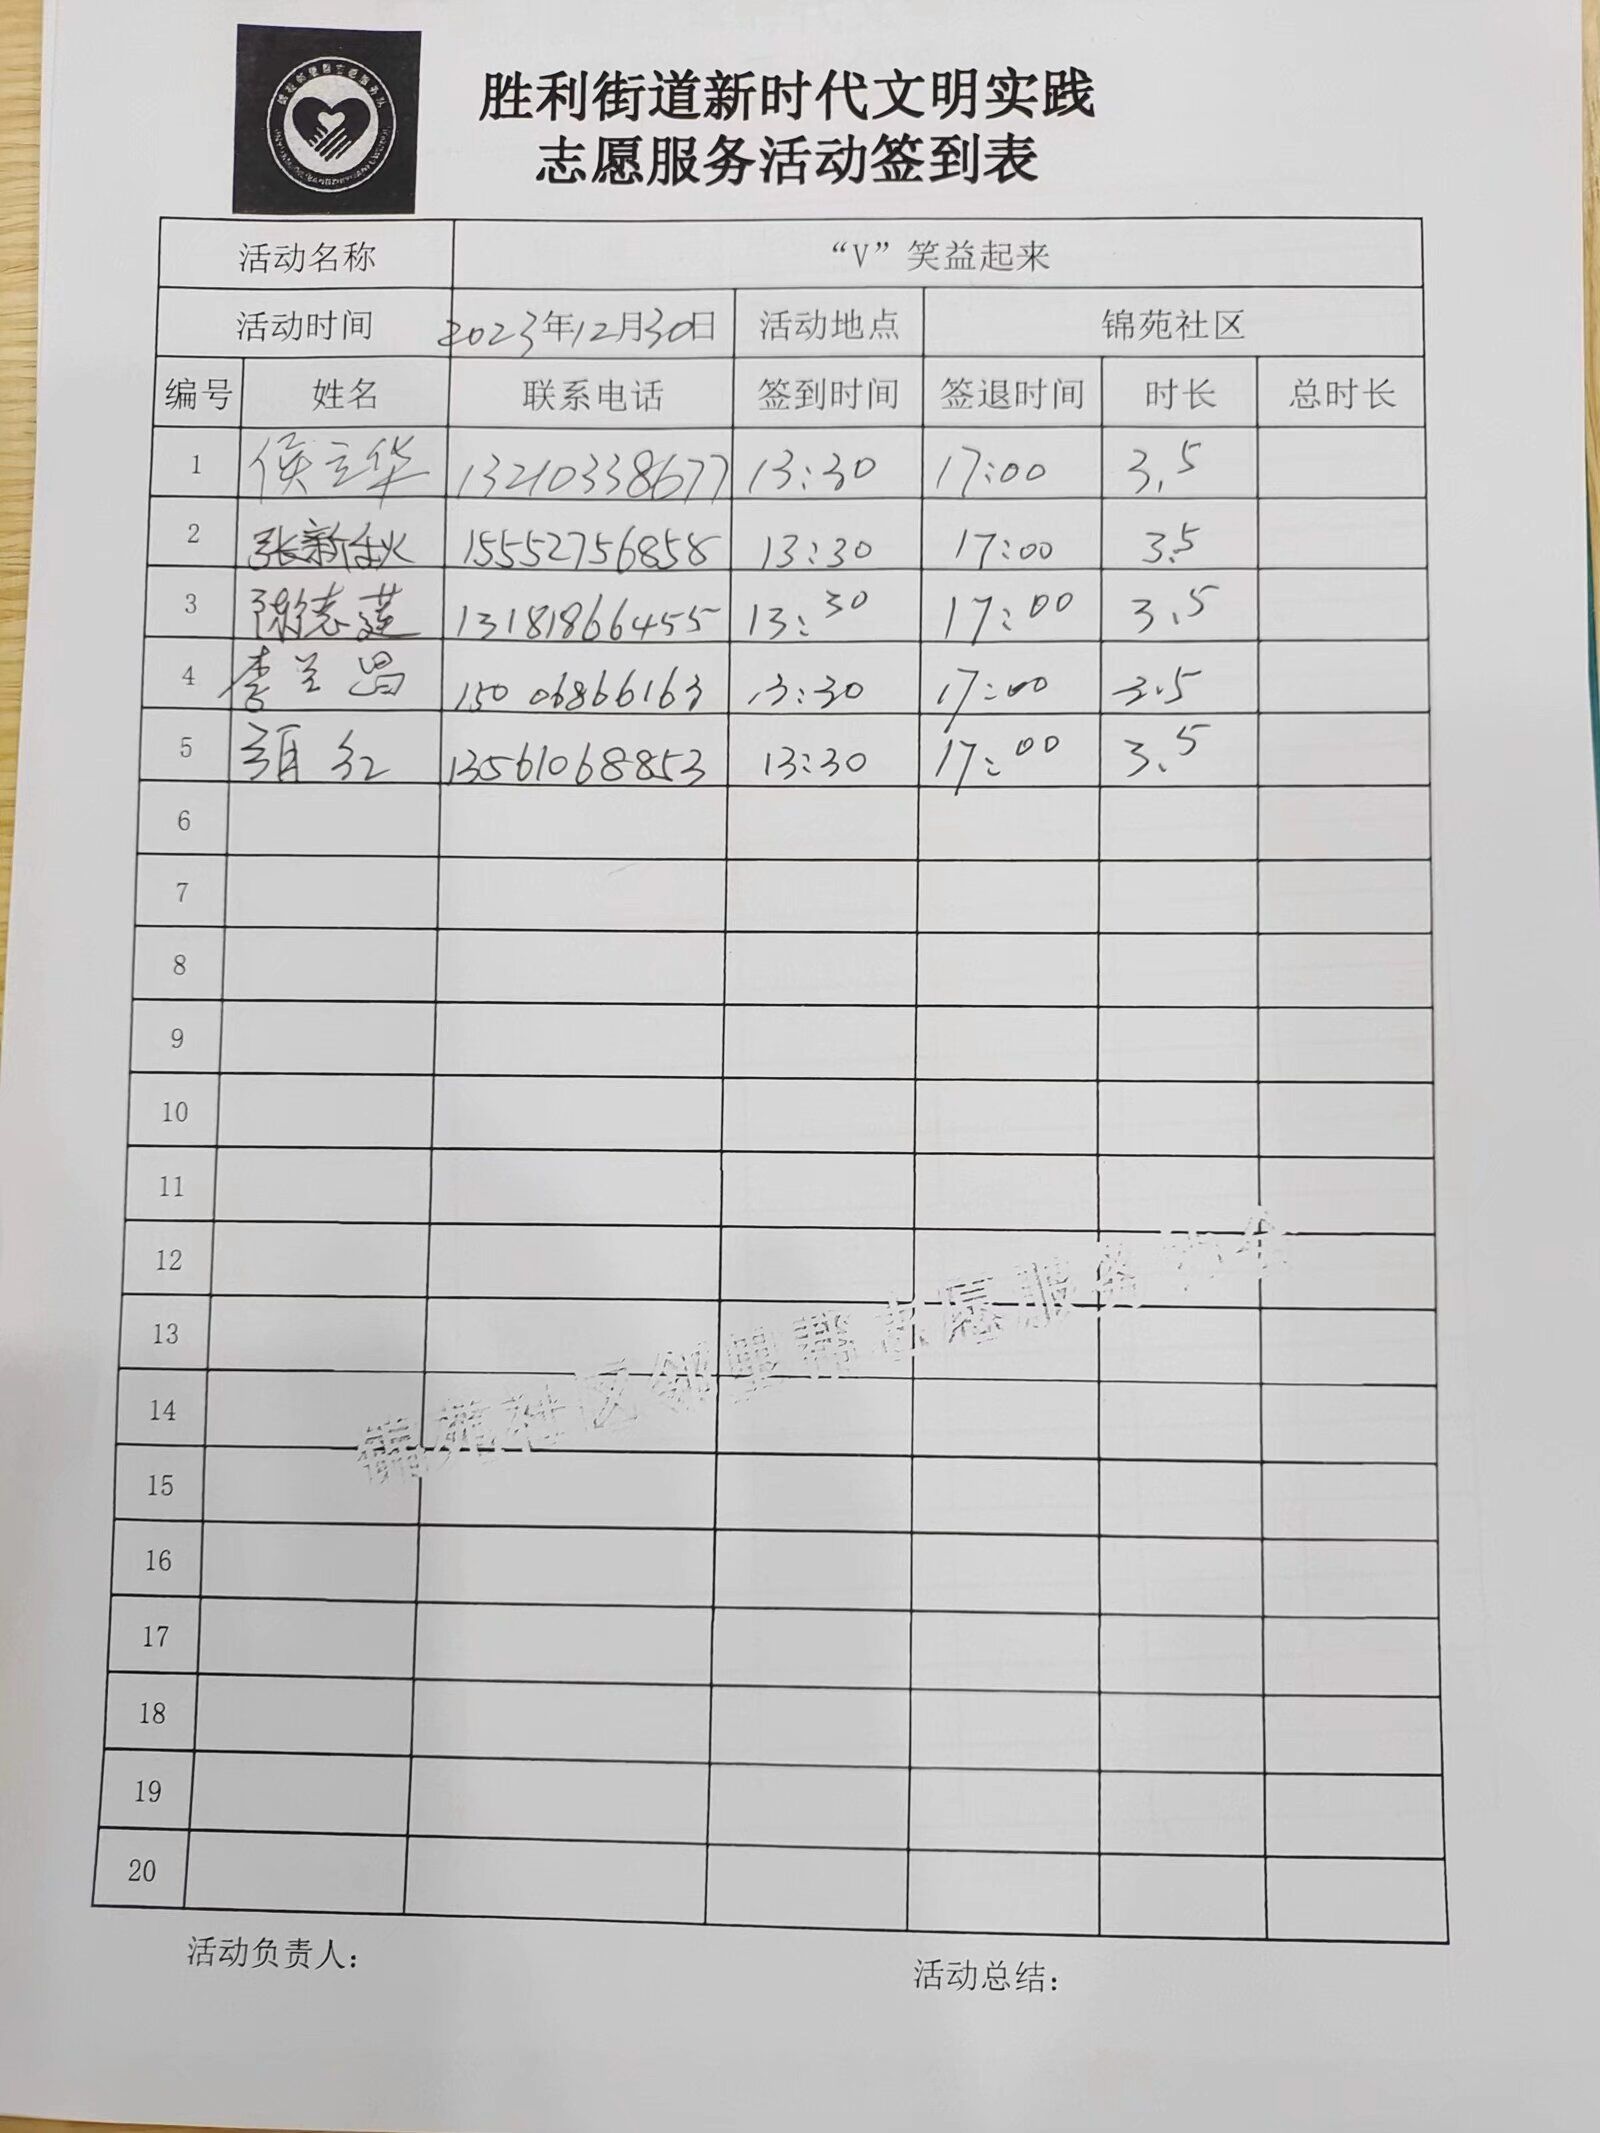 胜利街道新时代文明实践
志愿服务活动签到表
活动名称 “V”笑益起来
活动时间 2023年12月30日 活动地点 锦苑社区
编号 姓名 联系电话 签到时间 签退时间 时长 总时长
1 侯立华 13210338677 13:30 17:00 3.5
2 张新秋 15552756858 13:30 17:00 3.5
3 陈德莲 13181866455 13:30 17:00 3.5
4 李兰昌 15006866163 13:30 17:00 3.5
5 红 13561068853 13:30 17:00 3.5
6
7
8
9
10
11
12
13
14
15
16
17
18
19
20
锦苑社区邻里帮志愿服务协会
活动负责人：
活动总结：